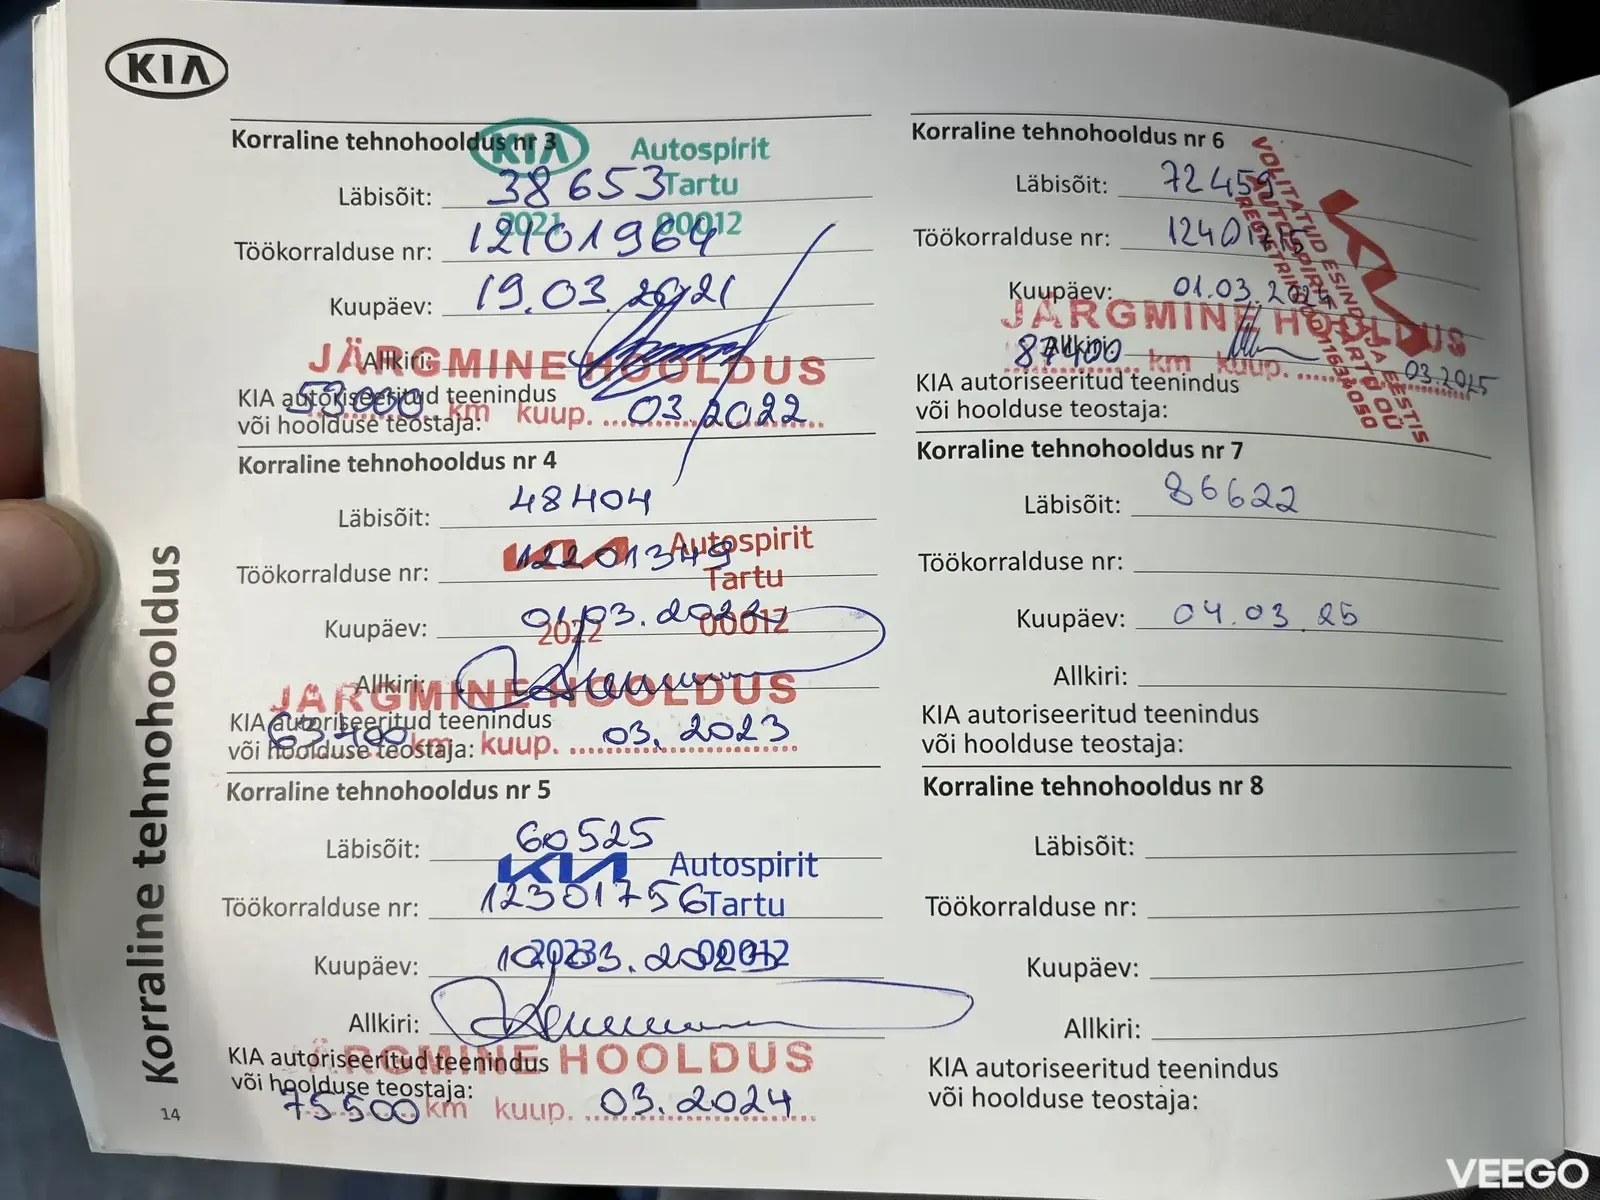 KIA
Korraline tehnohooldus nr 3
KIA Autospirit
Tartu
2021 00012
Läbisõit: 38 653
Töökorralduse nr: 12101964
Kuupäev: 19.03.2021
Allkiri:
JÄRGMINE HOOLDUS
KIA autoriseeritud teenindus
või hoolduse teostaja:
km kuup. 03.2022
Korraline tehnohooldus nr 4
Läbisõit: 48404
KIA Autospirit
Tartu
2022 00012
Töökorralduse nr: 12201349
Kuupäev: 01.03.2022
Allkiri:
JÄRGMINE HOOLDUS
KIA autoriseeritud teenindus
või hoolduse teostaja:
63400 km kuup. 03. 2023
Korraline tehnohooldus nr 5
Läbisõit: 60525
KIA Autospirit
Tartu
2023 00012
Töökorralduse nr: 12301756
Kuupäev: 10.03.2023
Allkiri:
JÄRGMINE HOOLDUS
KIA autoriseeritud teenindus
või hoolduse teostaja:
75500 km kuup. 03.2024
Korraline tehnohooldus nr 6
Läbisõit: 72459
Töökorralduse nr: 12401715
Kuupäev: 01.03.2024
Allkiri:
JÄRGMINE HOOLDUS
87400 km kuup. 03.2025
KIA
VOLITATUD ESINDAJA EESTIS
AUTOSPIRIT TARTU OÜ
KIA autoriseeritud teenindus
või hoolduse teostaja:
Korraline tehnohooldus nr 7
Läbisõit: 86622
Töökorralduse nr:
Kuupäev: 04.03.25
Allkiri:
KIA autoriseeritud teenindus
või hoolduse teostaja:
Korraline tehnohooldus nr 8
Läbisõit:
Töökorralduse nr:
Kuupäev:
Allkiri:
KIA autoriseeritud teenindus
või hoolduse teostaja:
Korraline tehnohooldus
14
VEEGO